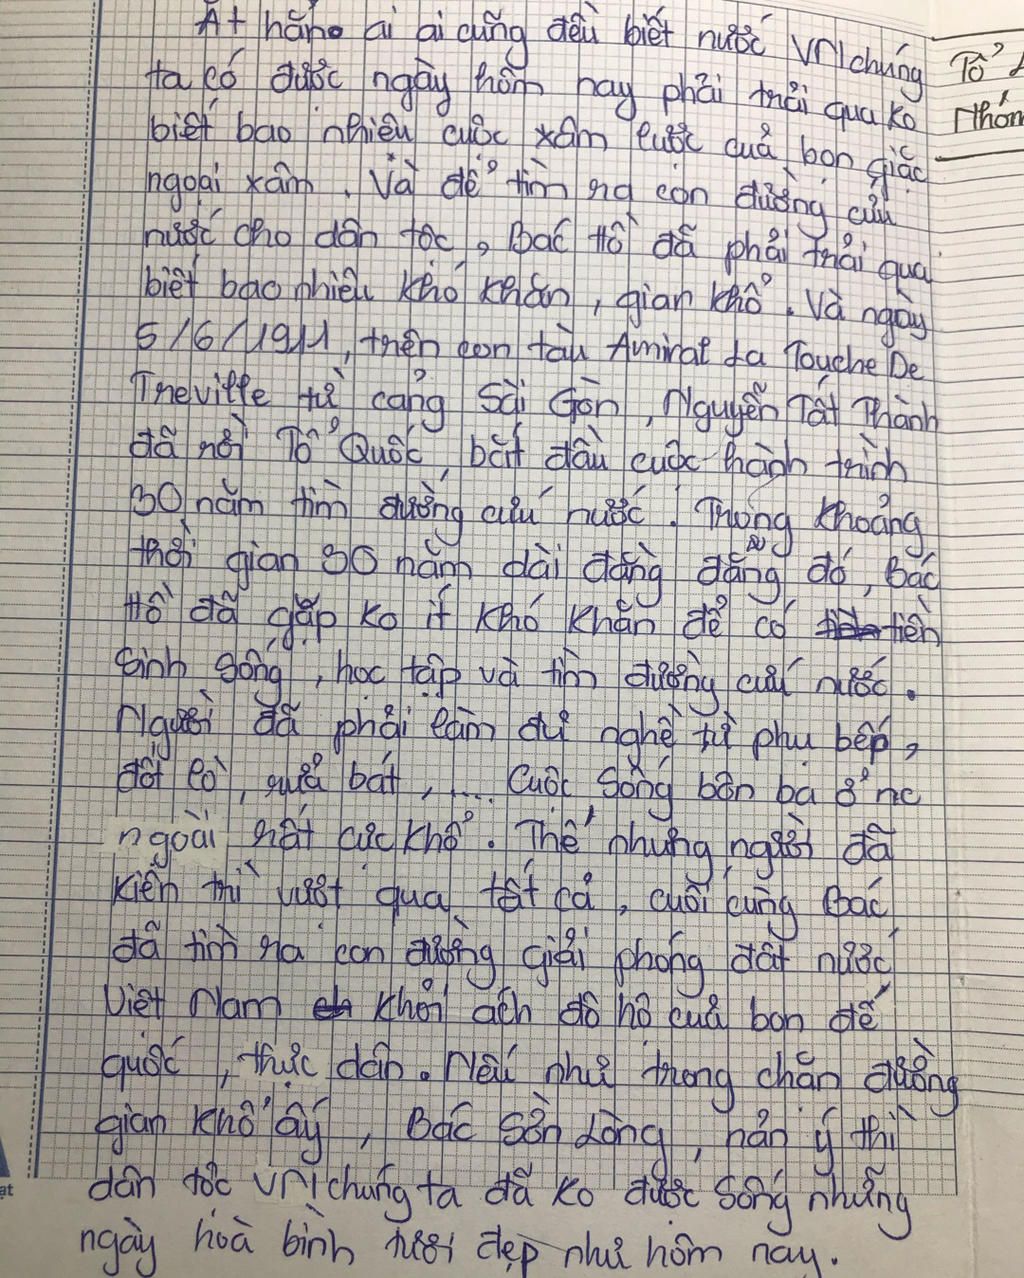 Ắt hẳn ai ai cũng đều biết nước VN chúng
ta có được ngày hôm nay phải trải qua ko
biết bao nhiêu cuộc xâm lược của bọn giặc
ngoại xâm. Và để tìm ra con đường cứu
nước cho dân tộc, Bác Hồ đã phải trải qua
biết bao nhiêu khó khăn, gian khổ. Và ngày
5/6/1911, trên con tàu Amiral La Touche De
Treville từ cảng Sài Gòn, Nguyễn Tất Thành
đã rời Tổ Quốc, bắt đầu cuộc hành trình
30 năm tìm đường cứu nước. Trong khoảng
thời gian 30 năm dài đằng đẵng đó, Bác
Hồ đã gặp ko ít khó khăn để có tiền
sinh sống, học tập và tìm đường cứu nước.
Người đã phải làm đủ nghề từ phụ bếp,
đốt lò, rửa bát, ... Cuộc sống bôn ba ở nc
ngoài rất cực khổ. Thế nhưng người đã
kiên trì vượt qua tất cả, cuối cùng Bác
đã tìm ra con đường giải phóng đất nước
Việt Nam khỏi ách đô hộ của bọn đế
quốc, thực dân. Nếu như trong chặn đường
gian khổ ấy, Bác sờn lòng, nản ý thì
dân tộc VN chúng ta đã ko được sống những
ngày hoà bình tươi đẹp như hôm nay.
Tổ
Nhóm